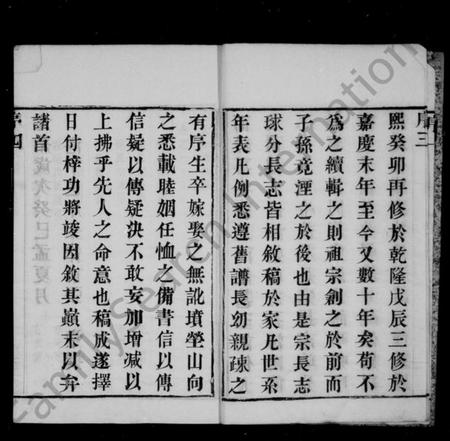 序三
熙癸卯再修於乾隆戊辰三修於
嘉慶末年至今又數十年矣苟不
為之續輯之則祖宗創之於前而
子孫竟湮之於後也由是宗長志
球分長志皆相敘稿於家凡世系
年表凡例悉遵舊譜長幼親疎之
有序生卒嫁娶之無訛墳塋山向
之悉載睦姻任恤之備書信以傳
信疑以傳疑決不敢妄加增減以
上拂乎先人之命意也稿成遂擇
日付梓功將竣因敘其巔末以弁
諸首
歲次癸巳孟夏月
序四
FamilySearch International